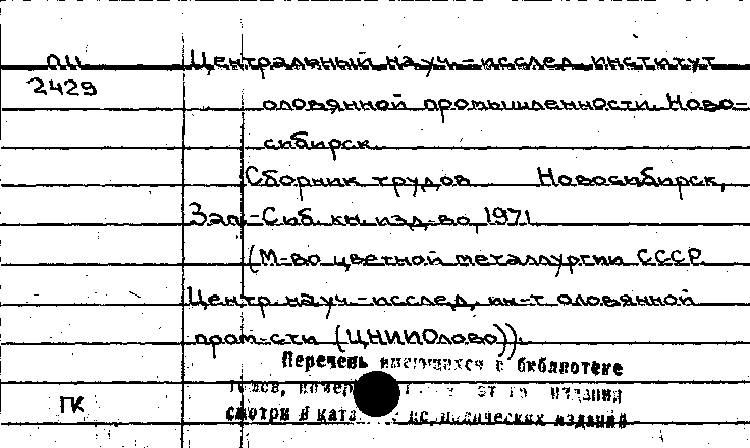 ПЦ
2429
Центральный науч.-исслед. институт
оловянной промышленности. Ново-
сибирск.
Сборник трудов Новосибирск,
Зап.-Сиб. кн. изд-во, 1971
(М-во цветной металлургии СССР
Центр. науч.-исслед. ин-т оловянной
пром-сти (ЦНИИОлово)).
Перечень имеющихся в библиотеке
томов, издания
смотри в изданий
ПК